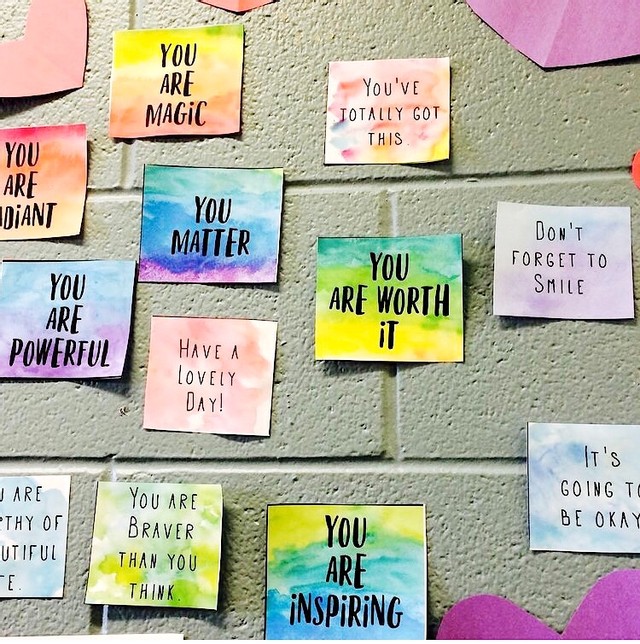 YOU
ARE
MAGIC
YOU'VE
TOTALLY GOT
THIS.
YOU
ARE
ADIANT
YOU
MATTER
DON'T
FORGET TO
SMILE
YOU
ARE WORTH
IT
YOU
ARE
POWERFUL
HAVE A
LOVELY
DAY!
IT'S
GOING TO
BE OKAY
U ARE
THY OF
UTIFUL
YOU ARE
BRAVER
THAN YOU
THINK.
YOU
ARE
INSPIRING